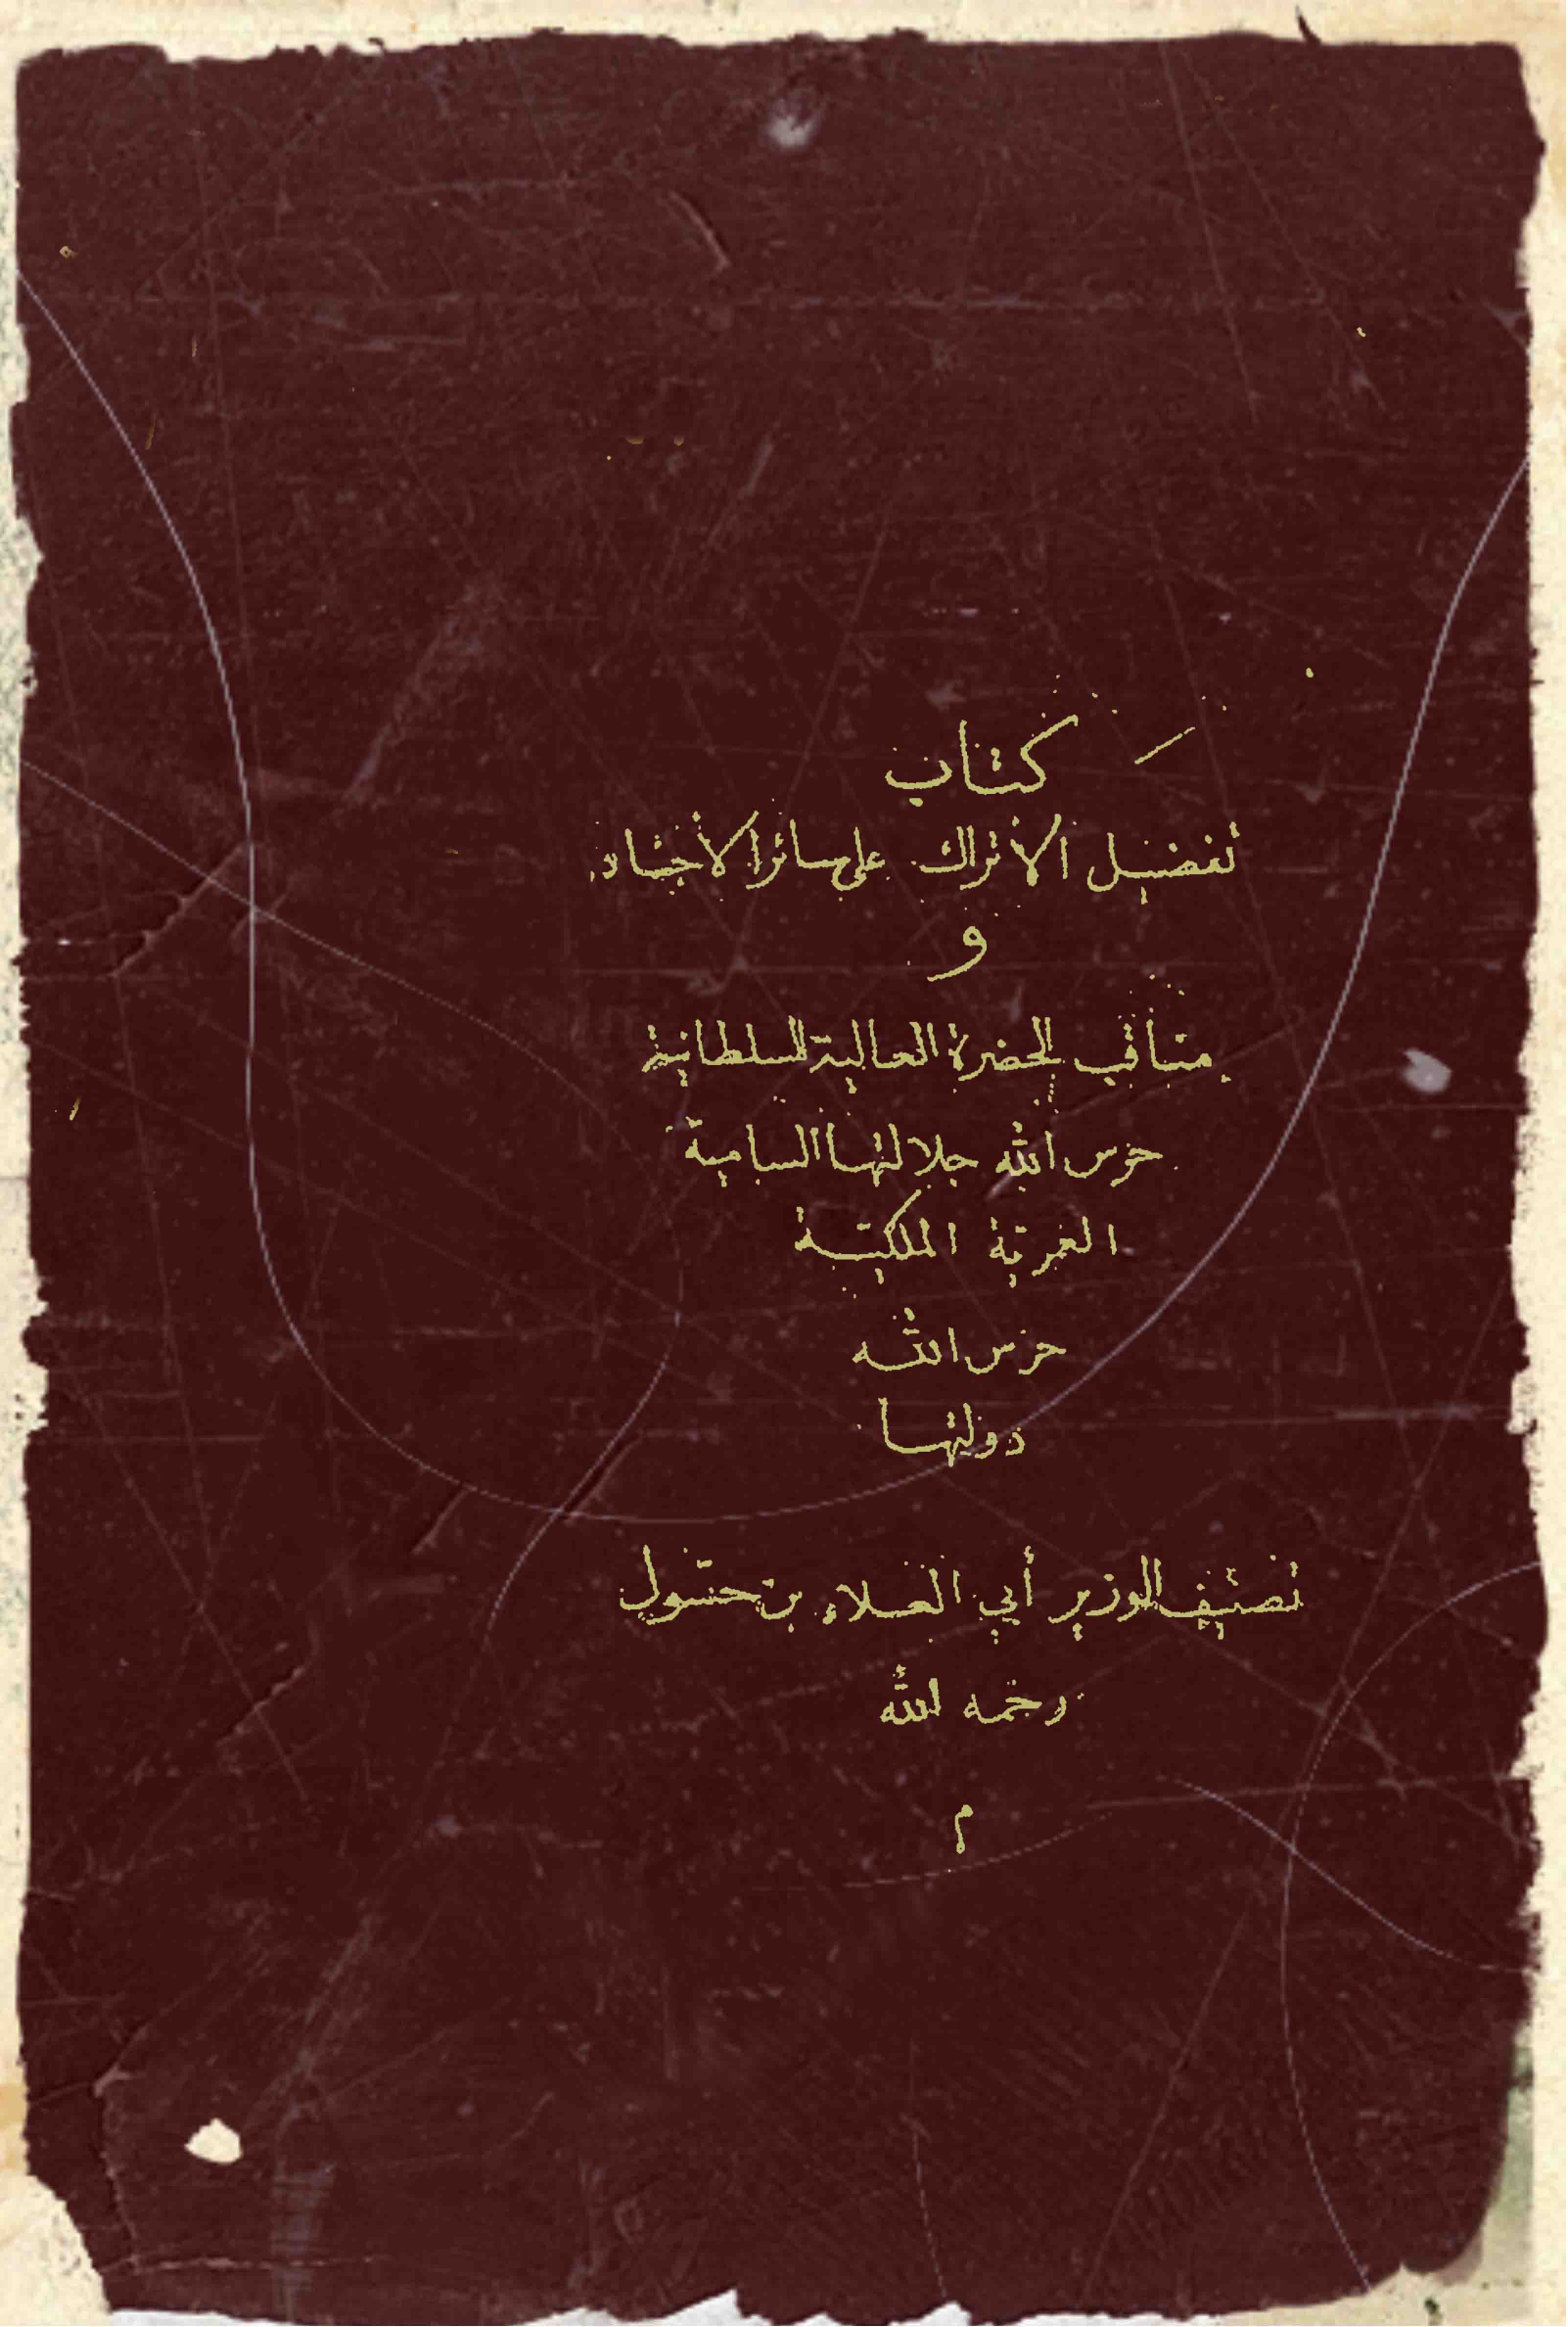 كتاب
تفضيل الأتراك على سائر الأجناد
و
مناقب الحضرة العالية السلطانية
حرس الله جلالتها السامية
الملكية
حرس الله
دولتها
تصنيف الوزير أبي العلاء بن حسّول
رحمه الله
م